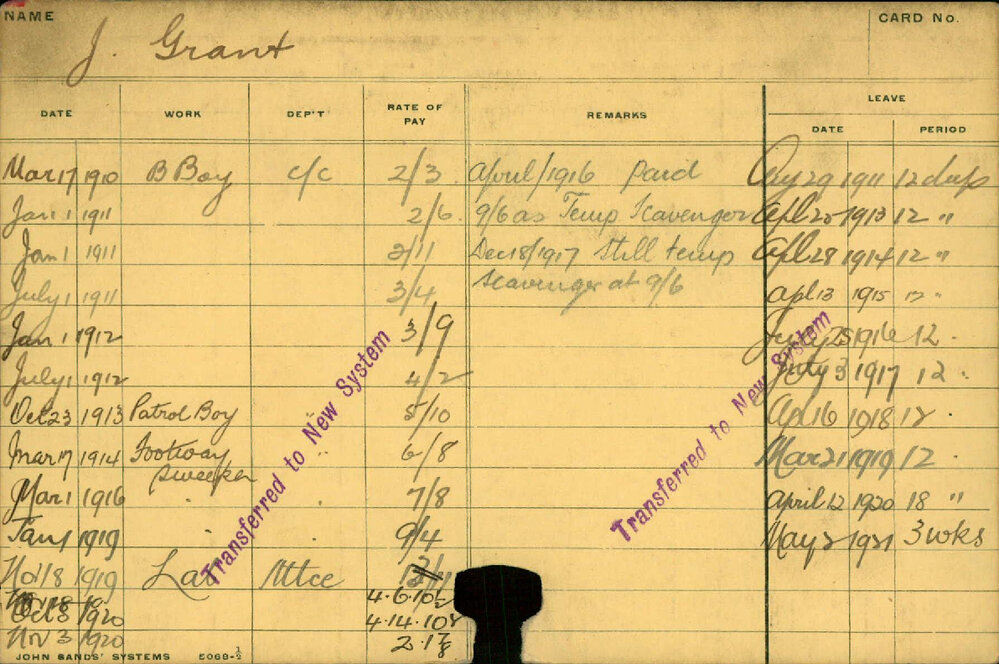 NAME
J. Grant
CARD No.
DATE WORK DEP'T RATE OF PAY REMARKS LEAVE
DATE PERIOD
Mar 17 1910 B Boy C/C 2/3 April/1916 paid Aug 29 1911 12 days
Jan 1 1911 2/6 9/6 as Temp Scavenger Apl 25 1913 12 "
Jan 1 1911 2/11 Dec 18/1917 Still temp Apl 28 1914 12 "
July 1 1911 3/4 Scavenger at 9/6 Apl 13 1915 12 "
Jan 1 1912 3/9 July 25 1916 12 "
July 1 1912 4/2 July 3 1917 12 "
Oct 23 1913 Patrol Boy " 5/10 Apl 6 1918 12
Mar 17 1914 Footway sweeper " 6/8 Mar 21 1919 12 "
Mar 1 1916 " 7/8 April 12 1920 18 "
Jan 1 1919 " " 9/4 May 2 1921 3 wks
Nov 18 1919 Lab Mtce
4.6.10½
Oct 3 1920 4.14.10
Nov 3 1920 2.17
Transferred to New System
Transferred to New System
JOHN SANDS' SYSTEMS 5068-½